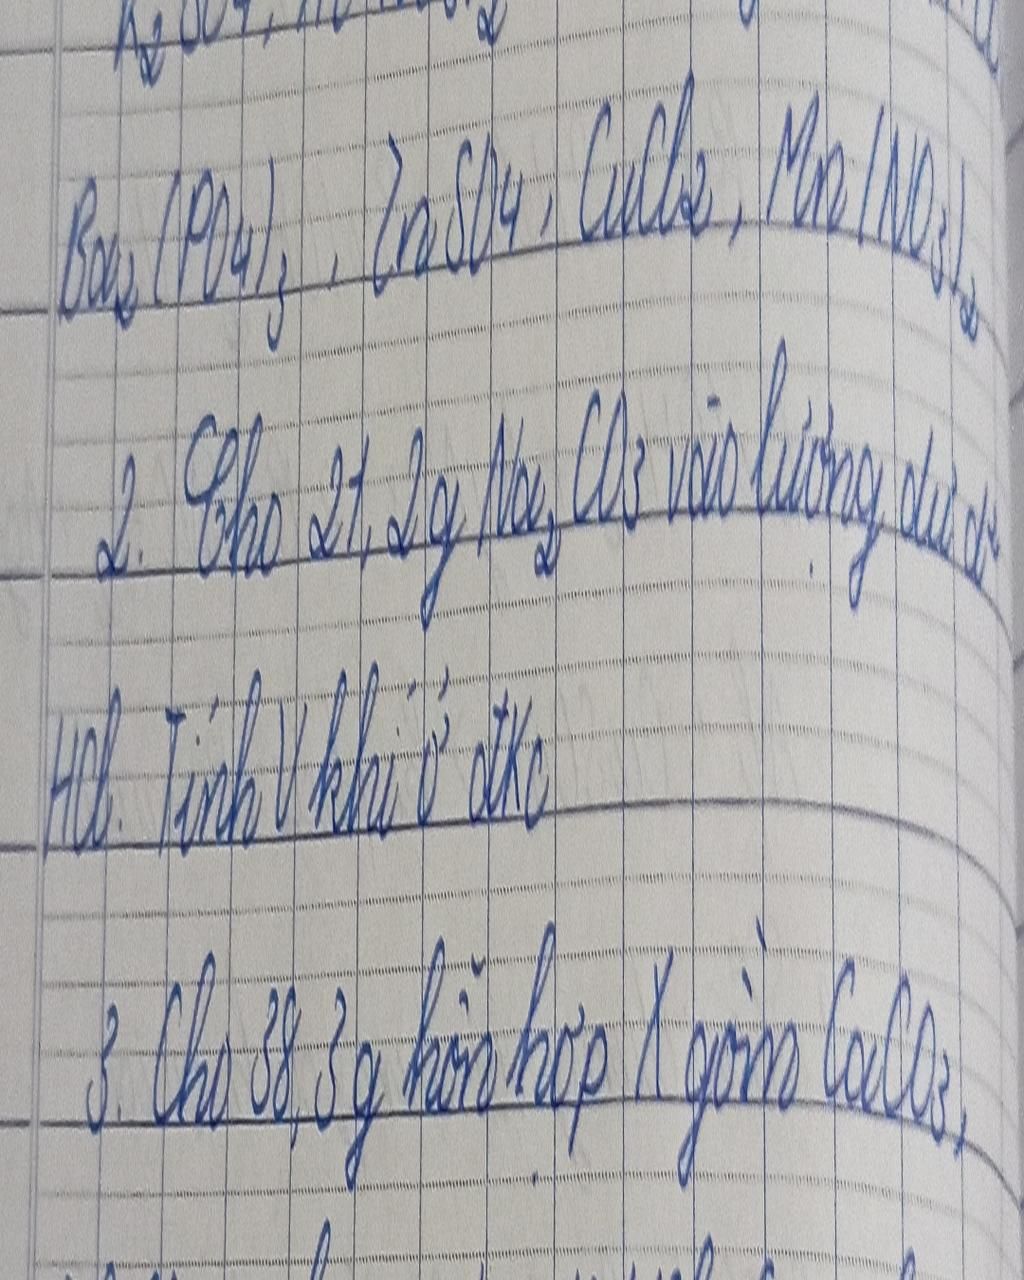 K₂SO₄,
Ba₂(PO₄)₃, ZnSO₄, CuCl₂, Mn(NO₃)₂
2. Cho 21,2g Na₂CO₃ vào lượng dư d²
HCl. Tính V khí ở đkc
3. Cho 38,3g hỗn hợp X gồm CaCO₃,